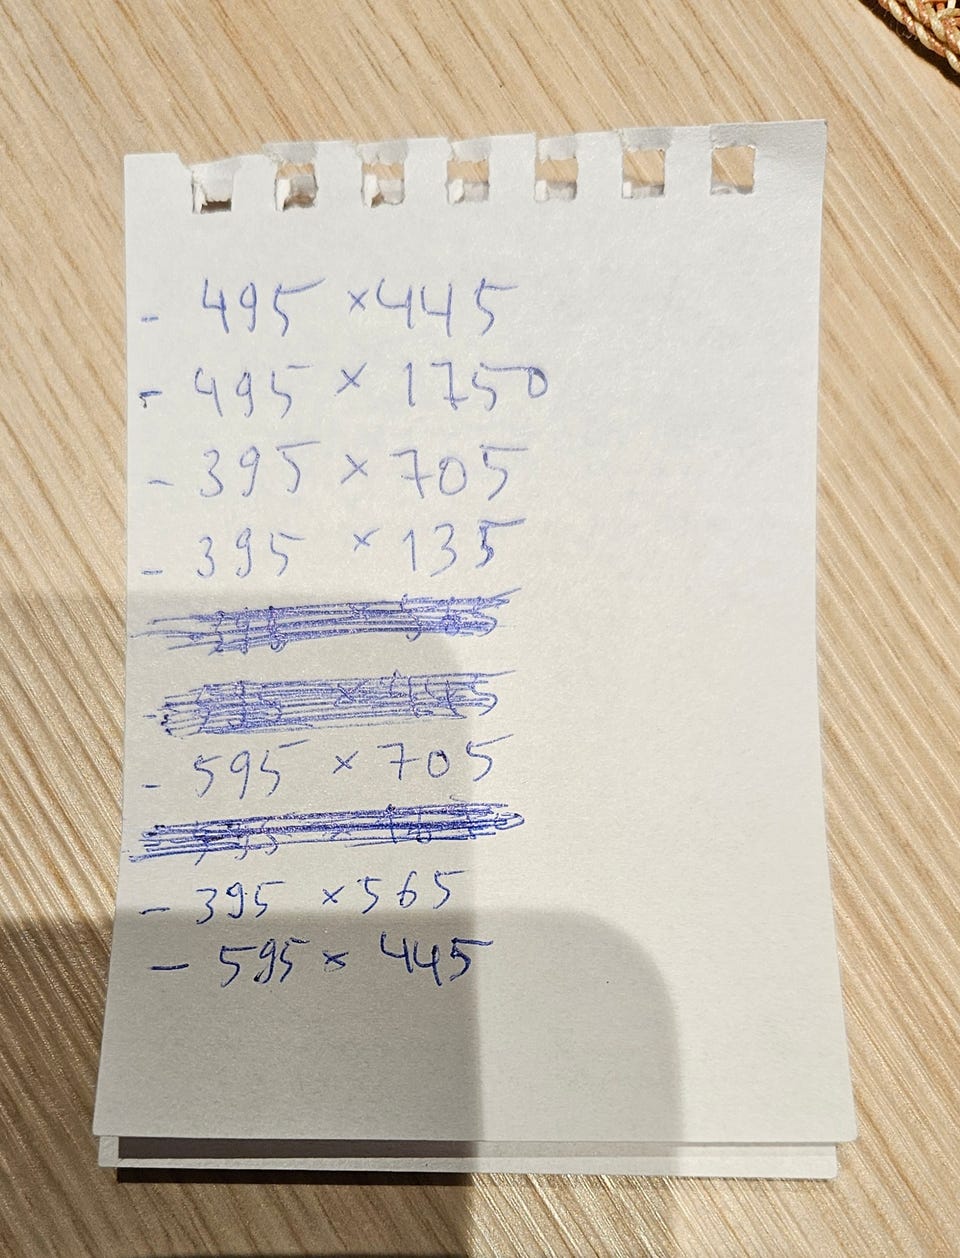 - 495 × 445
- 495 × 1750
- 395 × 705
- 395 × 135
- 595 × 705
- 395 × 565
- 595 × 445